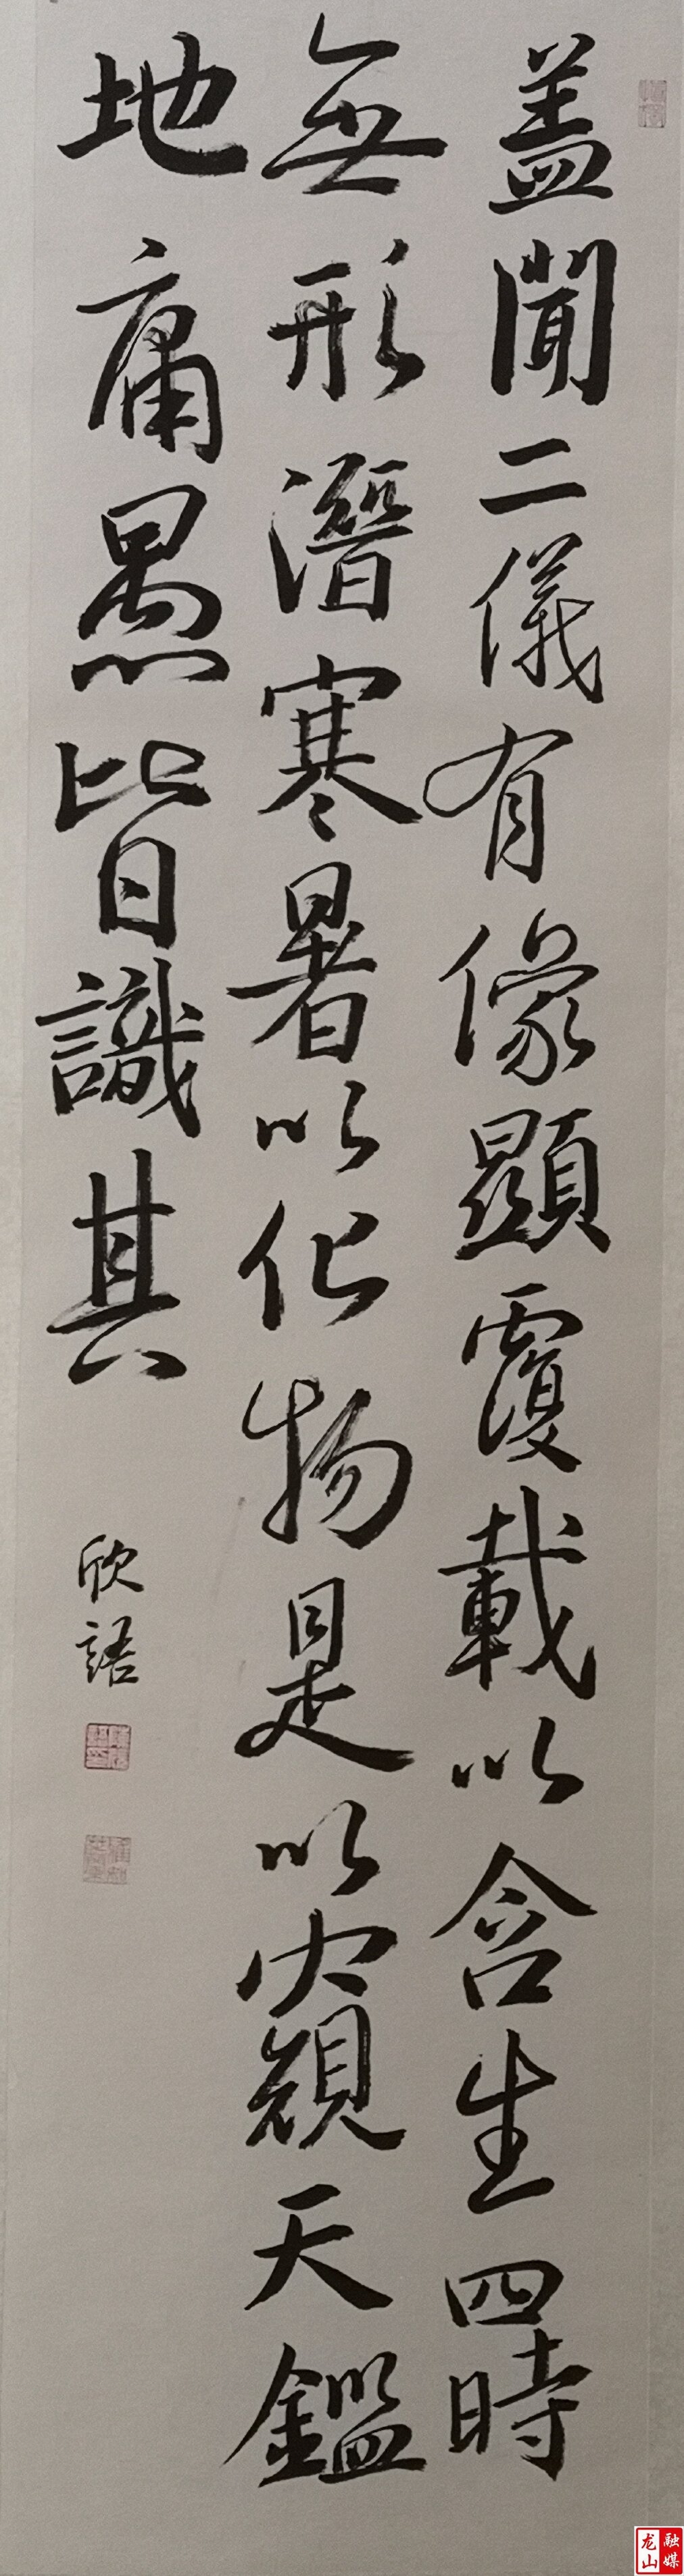 蓋聞二儀有像顯覆載以含生四時
無形潛寒暑以化物是以窺天鑑
地庸愚皆識其
欣語
融媒
龙山